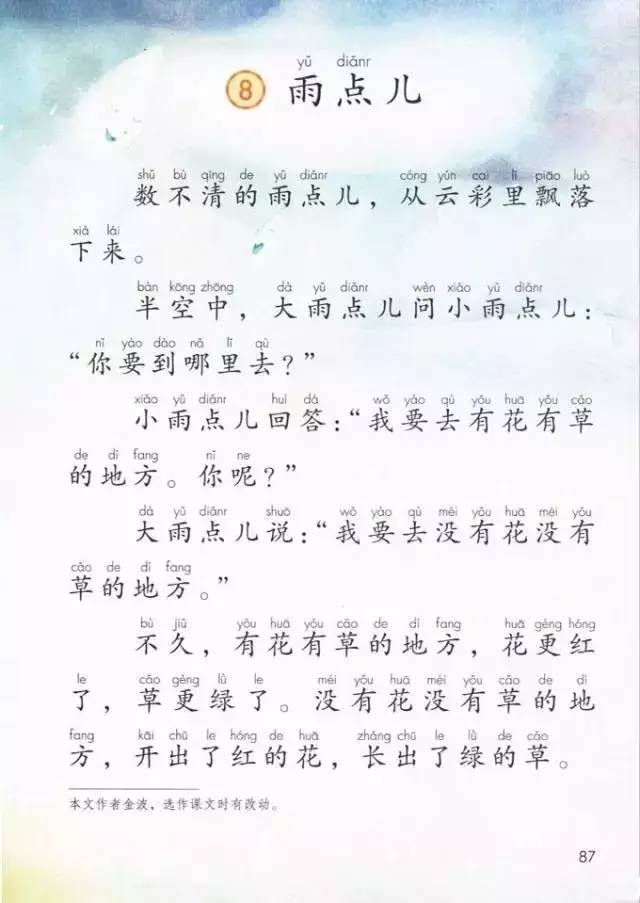 yǔ diǎnr
8 雨点儿
shǔ bù qīng de yǔ diǎnr cóng yún cai lǐ piāo luò
数不清的雨点儿，从云彩里飘落
xià lái
下来。
bàn kōng zhōng dà yǔ diǎnr wèn xiǎo yǔ diǎnr
半空中，大雨点儿问小雨点儿：
nǐ yào dào nǎ lǐ qù
“你要到哪里去？”
xiǎo yǔ diǎnr huí dá wǒ yào qù yǒu huā yǒu cǎo
小雨点儿回答：“我要去有花有草
de dì fang nǐ ne
的地方。你呢？”
dà yǔ diǎnr shuō wǒ yào qù méi yǒu huā méi yǒu
大雨点儿说：“我要去没有花没有
cǎo de dì fang
草的地方。”
bù jiǔ yǒu huā yǒu cǎo de dì fang huā gèng hóng
不久，有花有草的地方，花更红
le cǎo gèng lǜ le méi yǒu huā méi yǒu cǎo de dì
了，草更绿了。没有花没有草的地
fang kāi chū le hóng de huā zhǎng chū le lǜ de cǎo
方，开出了红的花，长出了绿的草。
本文作者金波，选作课文时有改动。
87